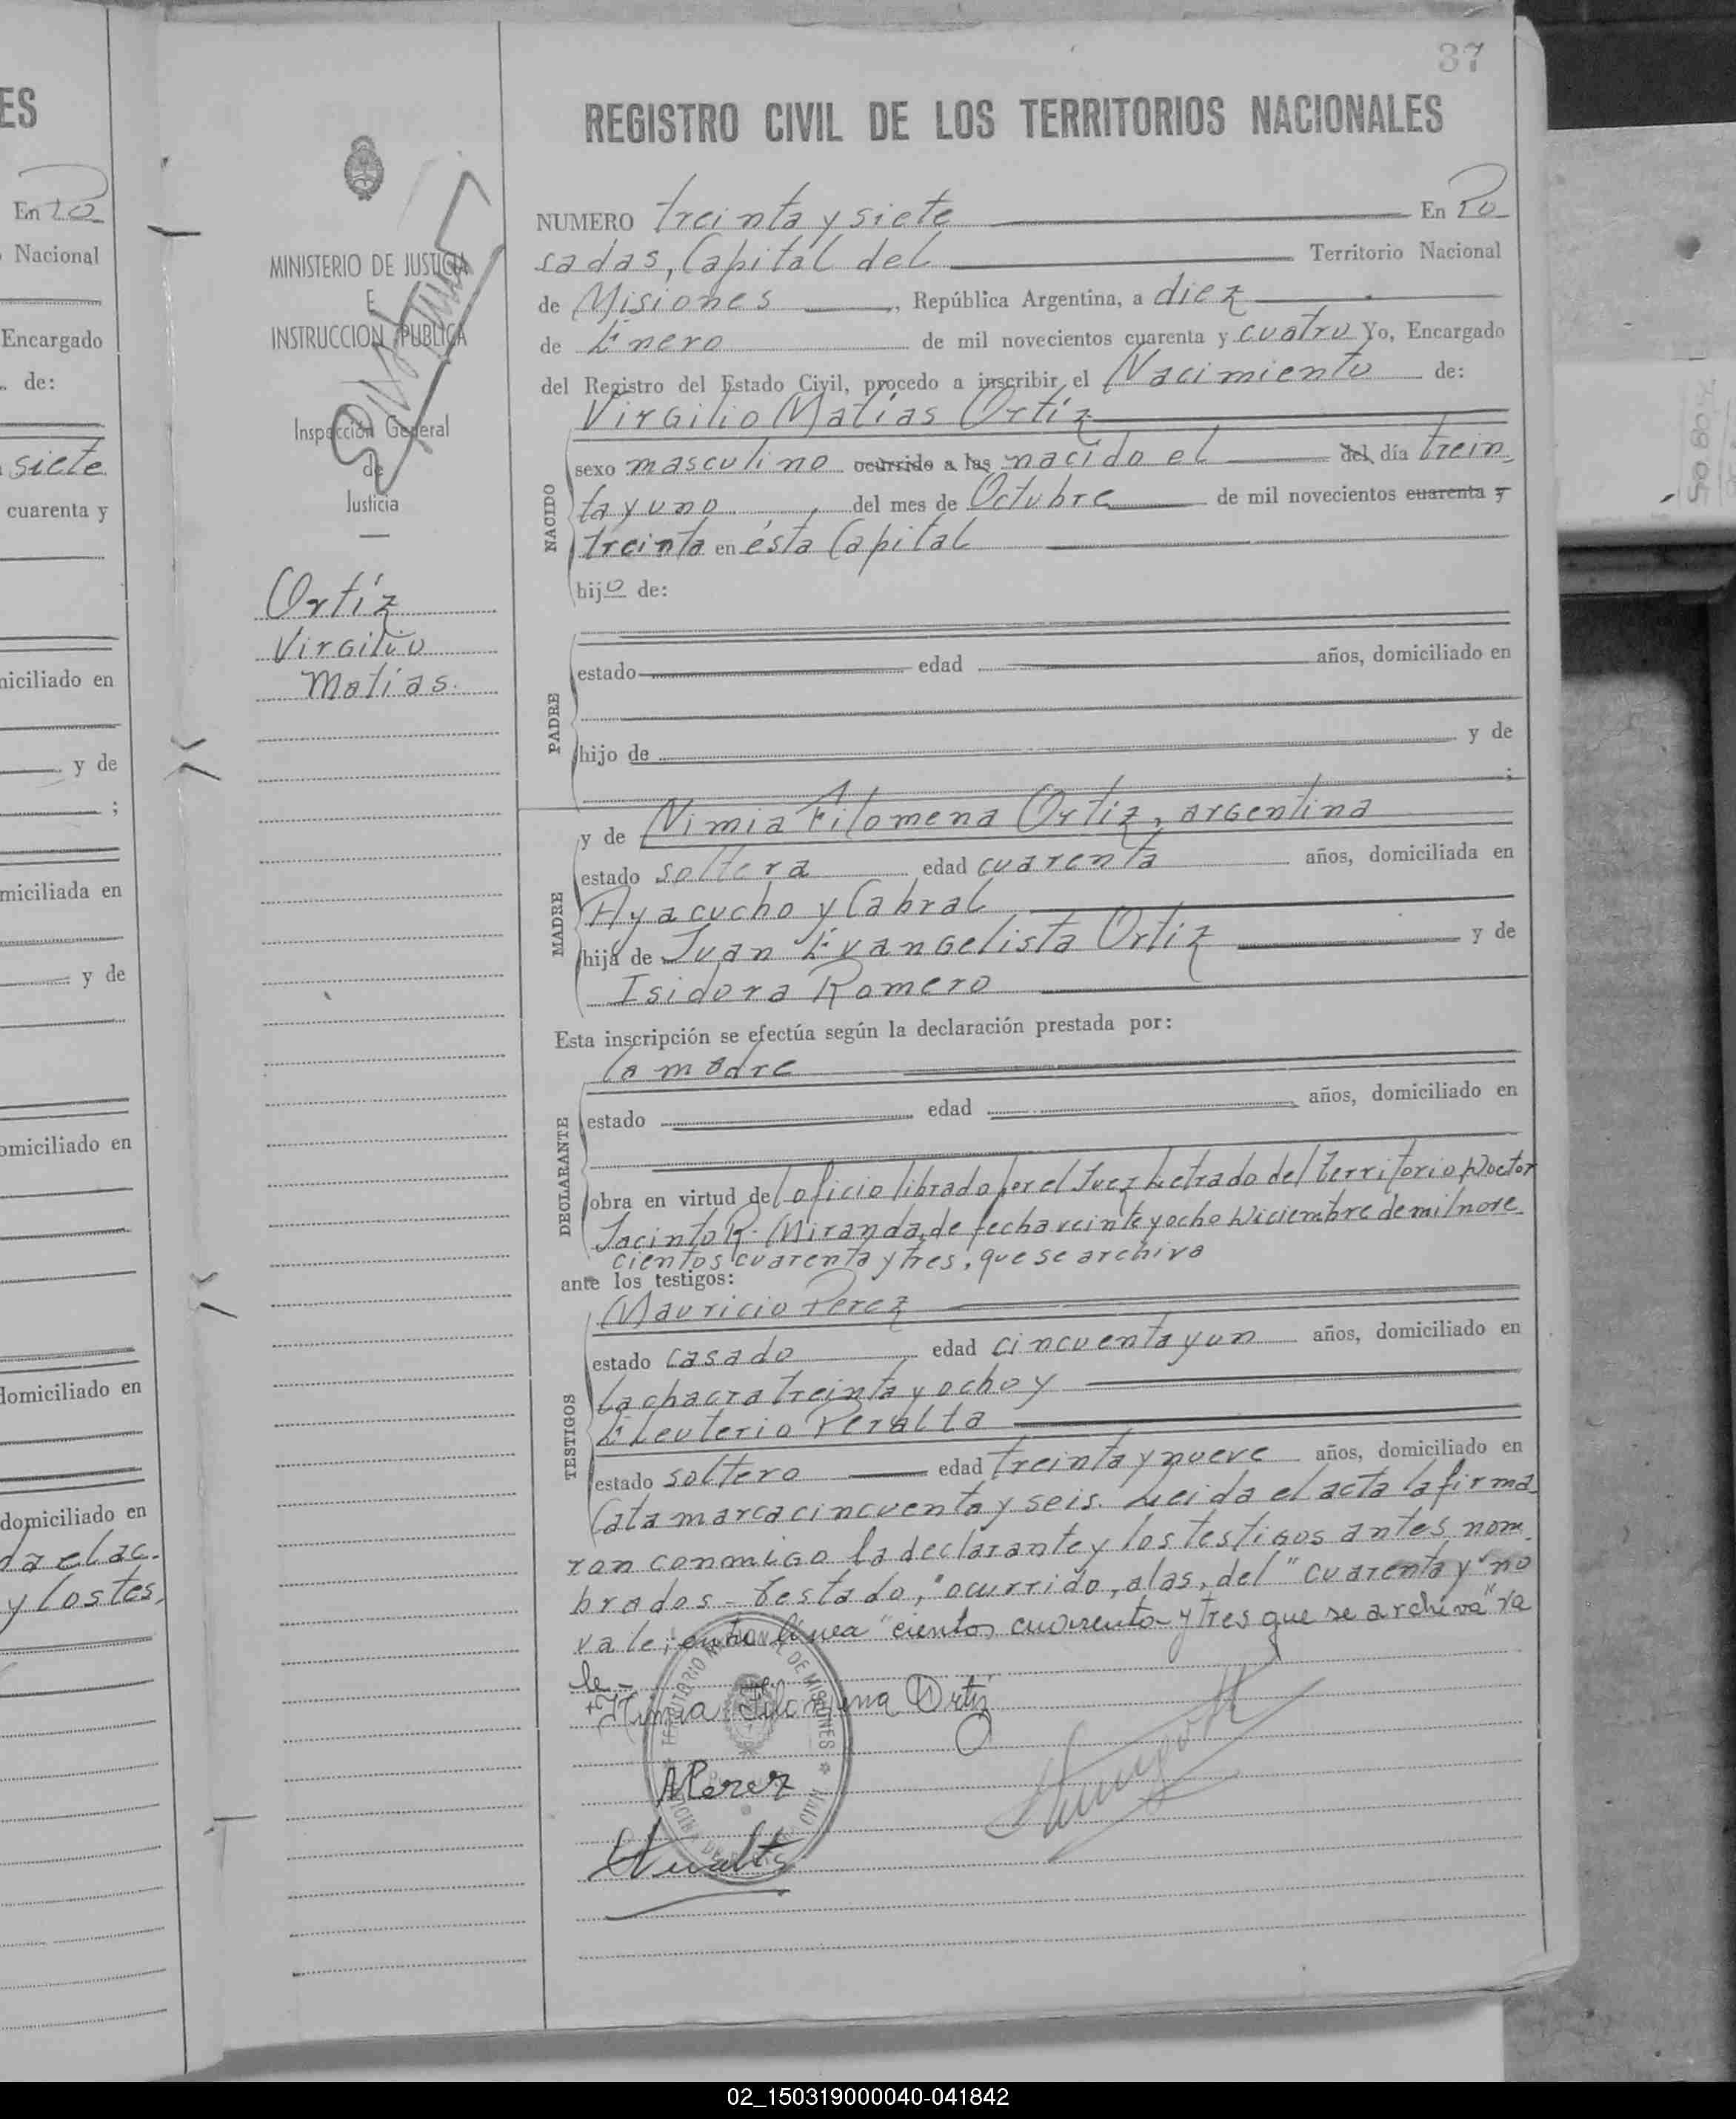 37
REGISTRO CIVIL DE LOS TERRITORIOS NACIONALES
NUMERO treinta y siete En Po
sadas, Capital del Territorio Nacional
de Misiones, República Argentina, a diez
de Enero de mil novecientos cuarenta y cuatro Yo, Encargado
del Registro del Estado Civil, procedo a inscribir el Nacimiento de:
NACIDO
Virgilio Matías Ortíz
sexo masculino ocurrido a las nacido el del día trein
ta y uno del mes de Octubre de mil novecientos cuarenta y
treinta en ésta Capital
hijo de:
PADRE
estado edad años, domiciliado en
hijo de y de
;
MADRE
y de Nimia Filomena Ortiz, argentina
estado soltera edad cuarenta años, domiciliada en
Ayacucho y Cabral
hija de Juan Evangelista Ortiz y de
Isidora Romero
Esta inscripción se efectúa según la declaración prestada por:
DECLARANTE
la madre
estado edad años, domiciliado en
obra en virtud del oficio librado por el Juez Letrado del Territorio Doctor
Jacinto R. Miranda, de fecha veinte y ocho Diciembre de mil nove
cientos cuarenta y tres, que se archiva
ante los testigos:
TESTIGOS
Mauricio Perez
estado casado edad cincuenta y un años, domiciliado en
la chacra treinta y ocho y
Eleuterio Peralta
estado soltero edad treinta y nueve años, domiciliado en
Catamarca cincuenta y seis. Leida el acta la firma
ron conmigo la declarante y los testigos antes nom
brados - Testado, "ocurrido, a las, del" cuarenta y "no
vale; entre línea "cientos cuarenta y tres que se archiva" va
le.-
Nimia Filomena Ortiz
MPerez
TERRITORIO NACIONAL DE MISIONES
MINISTERIO DE JUSTICIA
E
INSTRUCCION PUBLICA
Inspección General
de
Justicia
Ortíz
Virgilio
Matías.
ES
En Po
Nacional
Encargado
de:
siete
cuarenta y
niciliado en
y de
;
miciliada en
y de
omiciliado en
domiciliado en
domiciliado en
da el ac.
y los tes
02_150319000040-041842